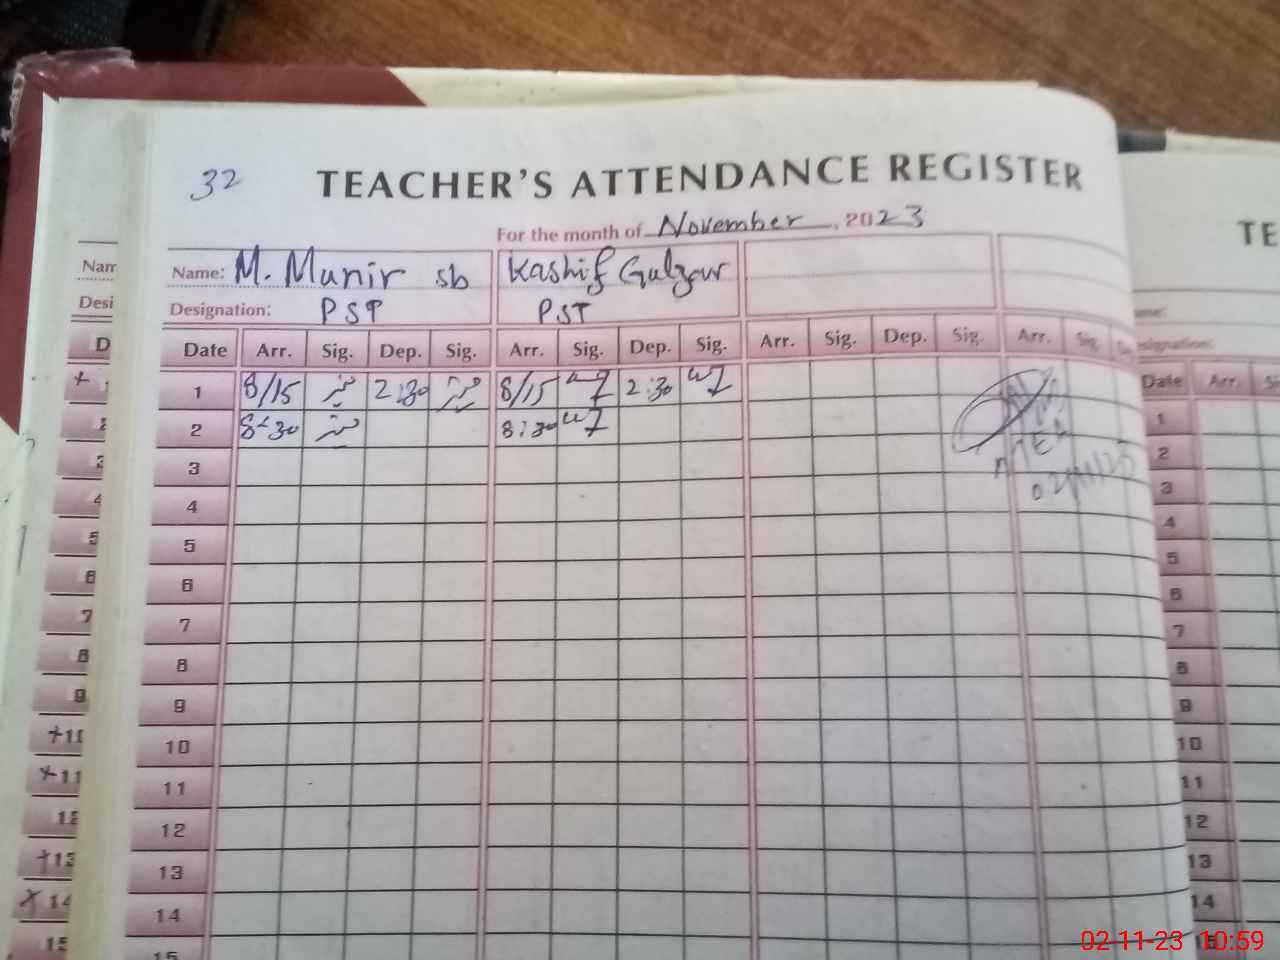 32
TEACHER'S ATTENDANCE REGISTER
For the month of November, 2023
Name: M. Munir sb Kashif Gulzar
Designation: PST PST
Date Arr. Sig. Dep. Sig. Arr. Sig. Dep. Sig. Arr. Sig. Dep. Sig. Arr. Sig.
1 8/15 منیر 2:30 منیر 8/15 2:30
2 8:30 منیر 8:30
3
4
5
6
7
8
9
10
11
12
13
14
15
02/11/23
Nam
Desi
D
+ 1
2
3
4
5
6
7
8
9
+10
+11
12
+13
x 14
15
TE
Date Arr.
1
2
3
4
5
6
7
8
9
10
11
12
13
14
15
02-11-23 10:59